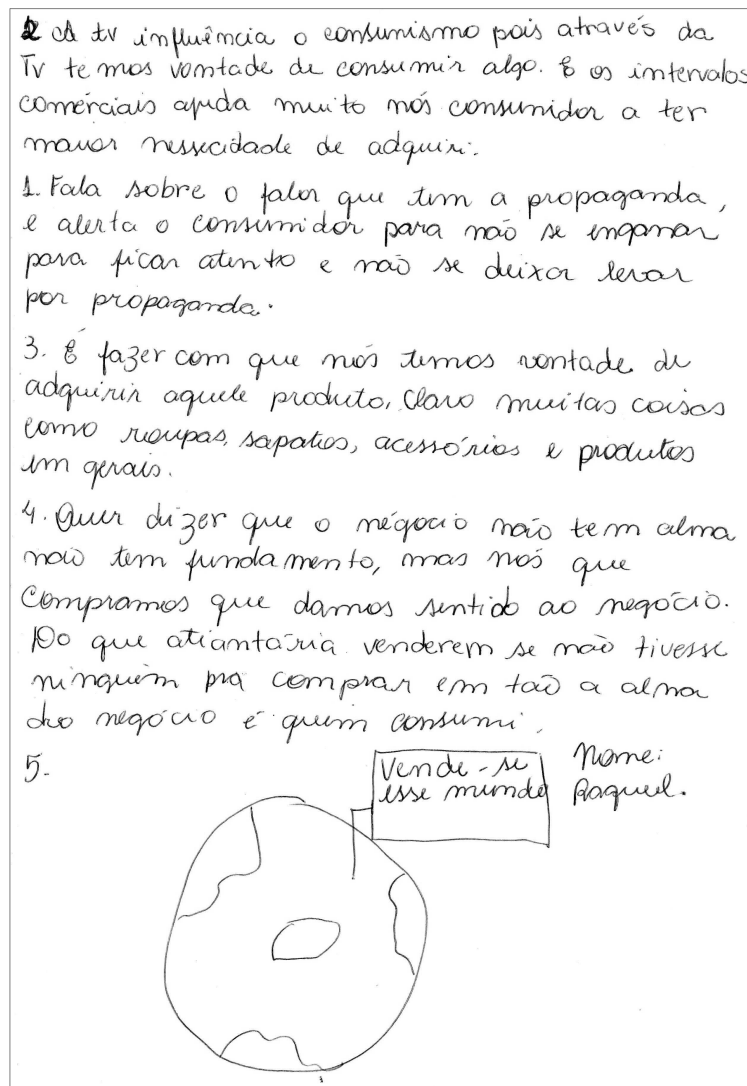 2 A tv influência o consumismo pois através da
Tv temos vontade de consumir algo. E os intervalos
comérciais ajuda muito nós consumidor a ter
maior nessecidade de adquiri.
1. Fala sobre o falor que tem a propaganda,
e alerta o consumidor para não se enganar
para ficar atento e não se deixar levar
por propaganda.
3. É fazer com que nós temos vontade de
adquirir aquele produto, Claro muitas coisas
como roupas, sapatos, acessórios e produtos
em gerais.
4. Quer dizer que o négocio não tem alma
não tem fundamento, mas nós que
Compramos que damos sentido ao negócio.
Do que atiantária venderem se não tivesse
ninguém pra comprar em taõ a alma
do negócio é quem consumi.
5.
Vende-se
esse mundo
Nome:
Raquel.